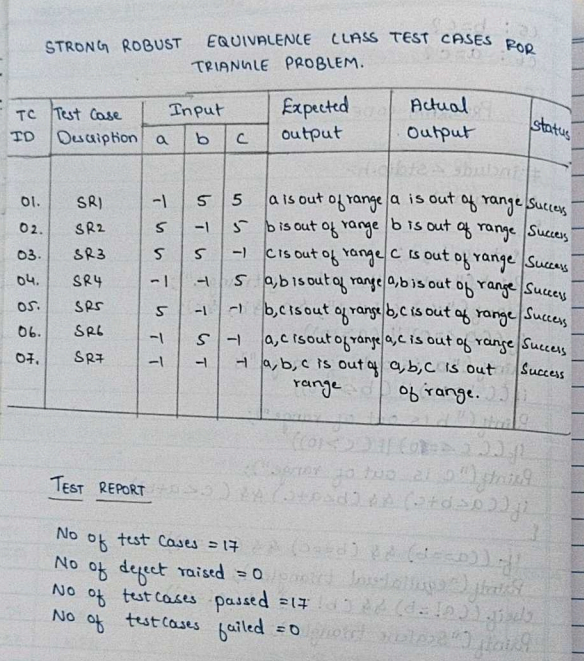 STRONG ROBUST EQUIVALENCE CLASS TEST CASES FOR
TRIANGLE PROBLEM.
TC ID Test Case Description Input a b c Expected output Actual output Status
01. SR1 -1 5 5 a is out of range a is out of range Success
02. SR2 5 -1 5 b is out of range b is out of range Success
03. SR3 5 5 -1 c is out of range c is out of range Success
04. SR4 -1 -1 5 a,b is out of range a,b is out of range Success
05. SR5 5 -1 -1 b,c is out of range b,c is out of range Success
06. SR6 -1 5 -1 a,c is out of range a,c is out of range Success
07. SR7 -1 -1 -1 a,b,c is out of range a,b,c is out of range. Success
TEST REPORT
No of test cases = 17
No of defect raised = 0
No of testcases passed = 17
No of testcases failed = 0